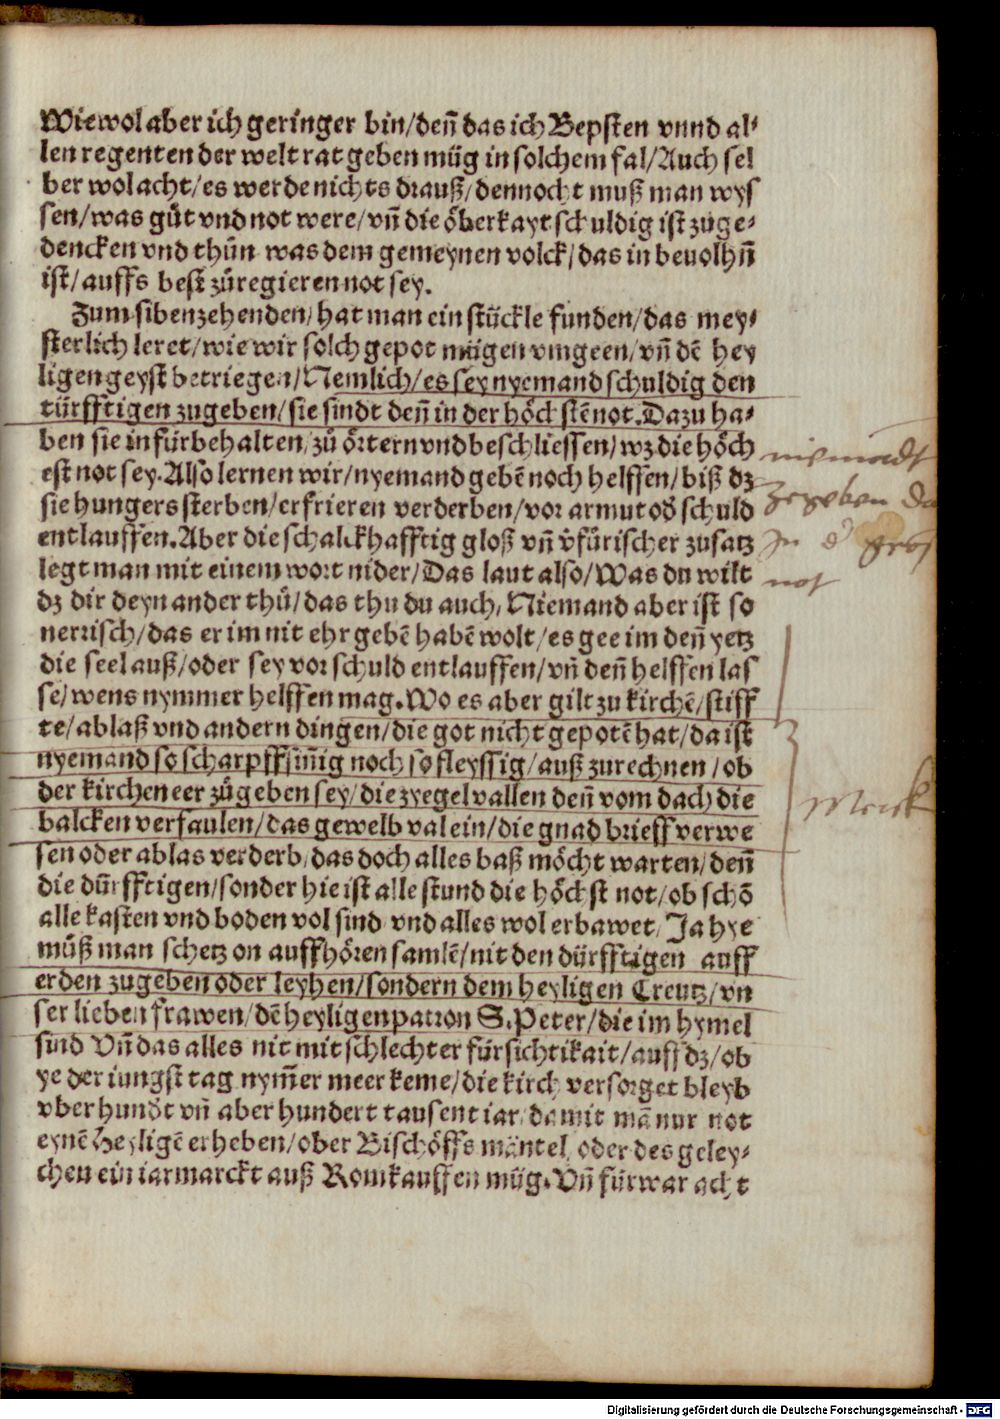 Wiewol aber ich geringer bin/deñ das ich Bepsten vnnd al⸗
len regenten der welt rat geben müg in solchem fal/Auch sel
ber wol acht/es werde nichts drauß/dennocht muß man wys
sen/was gůt vnd not were/vñ die öberkayt schuldig ist zuge⸗
dencken vnd thůn was dem gemeynen volck/das in beuolhñ
ist/auffs best zůregieren not sey.
Zum sibenzehenden/hat man ein stückle funden/das mey⸗
sterlich leret/wie wir solch gepot mügen vmgeen/vñ dē hey
ligen geyst betriegen/Nemlich/es sey nyemand schuldig den
türfftigen zugeben/sie sindt deñ in der höchstē not.Dazu ha⸗
ben sie in fürbehalten/zů örtern vnd beschliessen/wz die höch
est not sey.Also lernen wir/nyemand gebē noch helffen/biß dz
sie hungers sterben/erfrieren verderben/vor armut oď schuld
entlauffen.Aber die schalckhafftig gloß vñ v̓fürischer zusatz
legt man mit einem wort nider/Das laut also/Was du wilt
dz dir deyn ander thů/das thu du auch/Niemand aber ist so
nerrisch/das er im nit ehr gebē habē wolt/es gee im deñ yetz
die seel auß/oder sey vor schuld entlauffen/vñ deñ helffen las
se/wens nymmer helffen mag.Wo es aber gilt zu kirchē/stiff
te/ablaß vnd andern dingen/die got nicht gepotē hat/da ist
nyemand so scharpffsiñig noch so fleyssig/auß zurechnen/ob
der kirchen eer zůgeben sey/die zyegel vallen deñ vom dach die
balcken verfaulen/das gewelb val ein/die gnad brieff verwe
sen oder ablas verderb/das doch alles baß möcht warten/deñ
die dürfftigen/sonder hie ist alle stund die höchst not/ob schō
alle kasten vnd boden vol sind vnd alles wol erbawet/Ja hye
můß man schetz on auffhören samlē/nit den dürfftigen auff
erden zugeben oder leyhen/sondern dem heyligen Creutz/vn
ser lieben frawen/dē heyligen patron S.Peter/die im hymel
sind Vñ das alles nit mit schlechter fürsichtikait/auff dz/ob
ye der iungst tag nym̃er meer keme/die kirch versorget bleyb
vber hundďt vñ aber hundert tausent iar/damit mā nur not
eynē Heyligē erheben/ober Bischöffs mäntel oder des geley⸗
chen ein iarmarckt auß Rom kauffen müg.Vñ fürwar acht
niemadt
zegeben da
In d
not
Merk
Digitalisierung gefördert durch die Deutsche Forschungsgemeinschaft - DFG